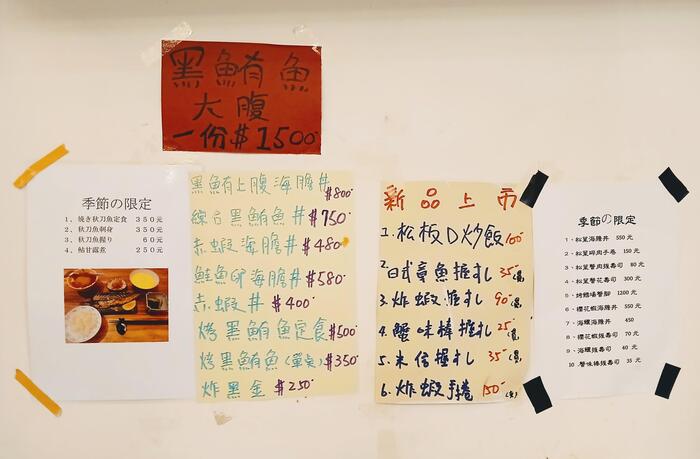 黑鮪魚
大腹
一份$1500
季節の限定
1、焼き秋刀魚定食 350元
2、秋刀魚刺身 350元
3、秋刀魚握り 60元
4、鮎甘露煮 250元
黑鮪上腹海膽丼 $800
綜合黑鮪魚丼 $750
赤蝦海膽丼 $480
鮭魚卵海膽丼 $580
赤蝦丼 $400
烤黑鮪魚定食 $500
烤黑鮪魚(單點) $350
炸黑金 $250
新品上市
1.松板D炒飯 100
2.日式章魚握扎 35
3.炸蝦握扎 90
4.蟹味棒握扎 25
5.米信握扎 35
6.炸蝦手卷 150
季節の限定
1、松葉海膽丼 550元
2、松葉碎肉手卷 150元
3、松葉蟹肉握壽司 80元
4、松葉蟹花壽司 300元
5、烤鱈場蟹腳 1200元
6、櫻花蝦海膽丼 550元
7、海螺海膽丼 450
8、櫻花蝦握壽司 70元
9、海螺握壽司 40元
10、蟹味棒握壽司 35元